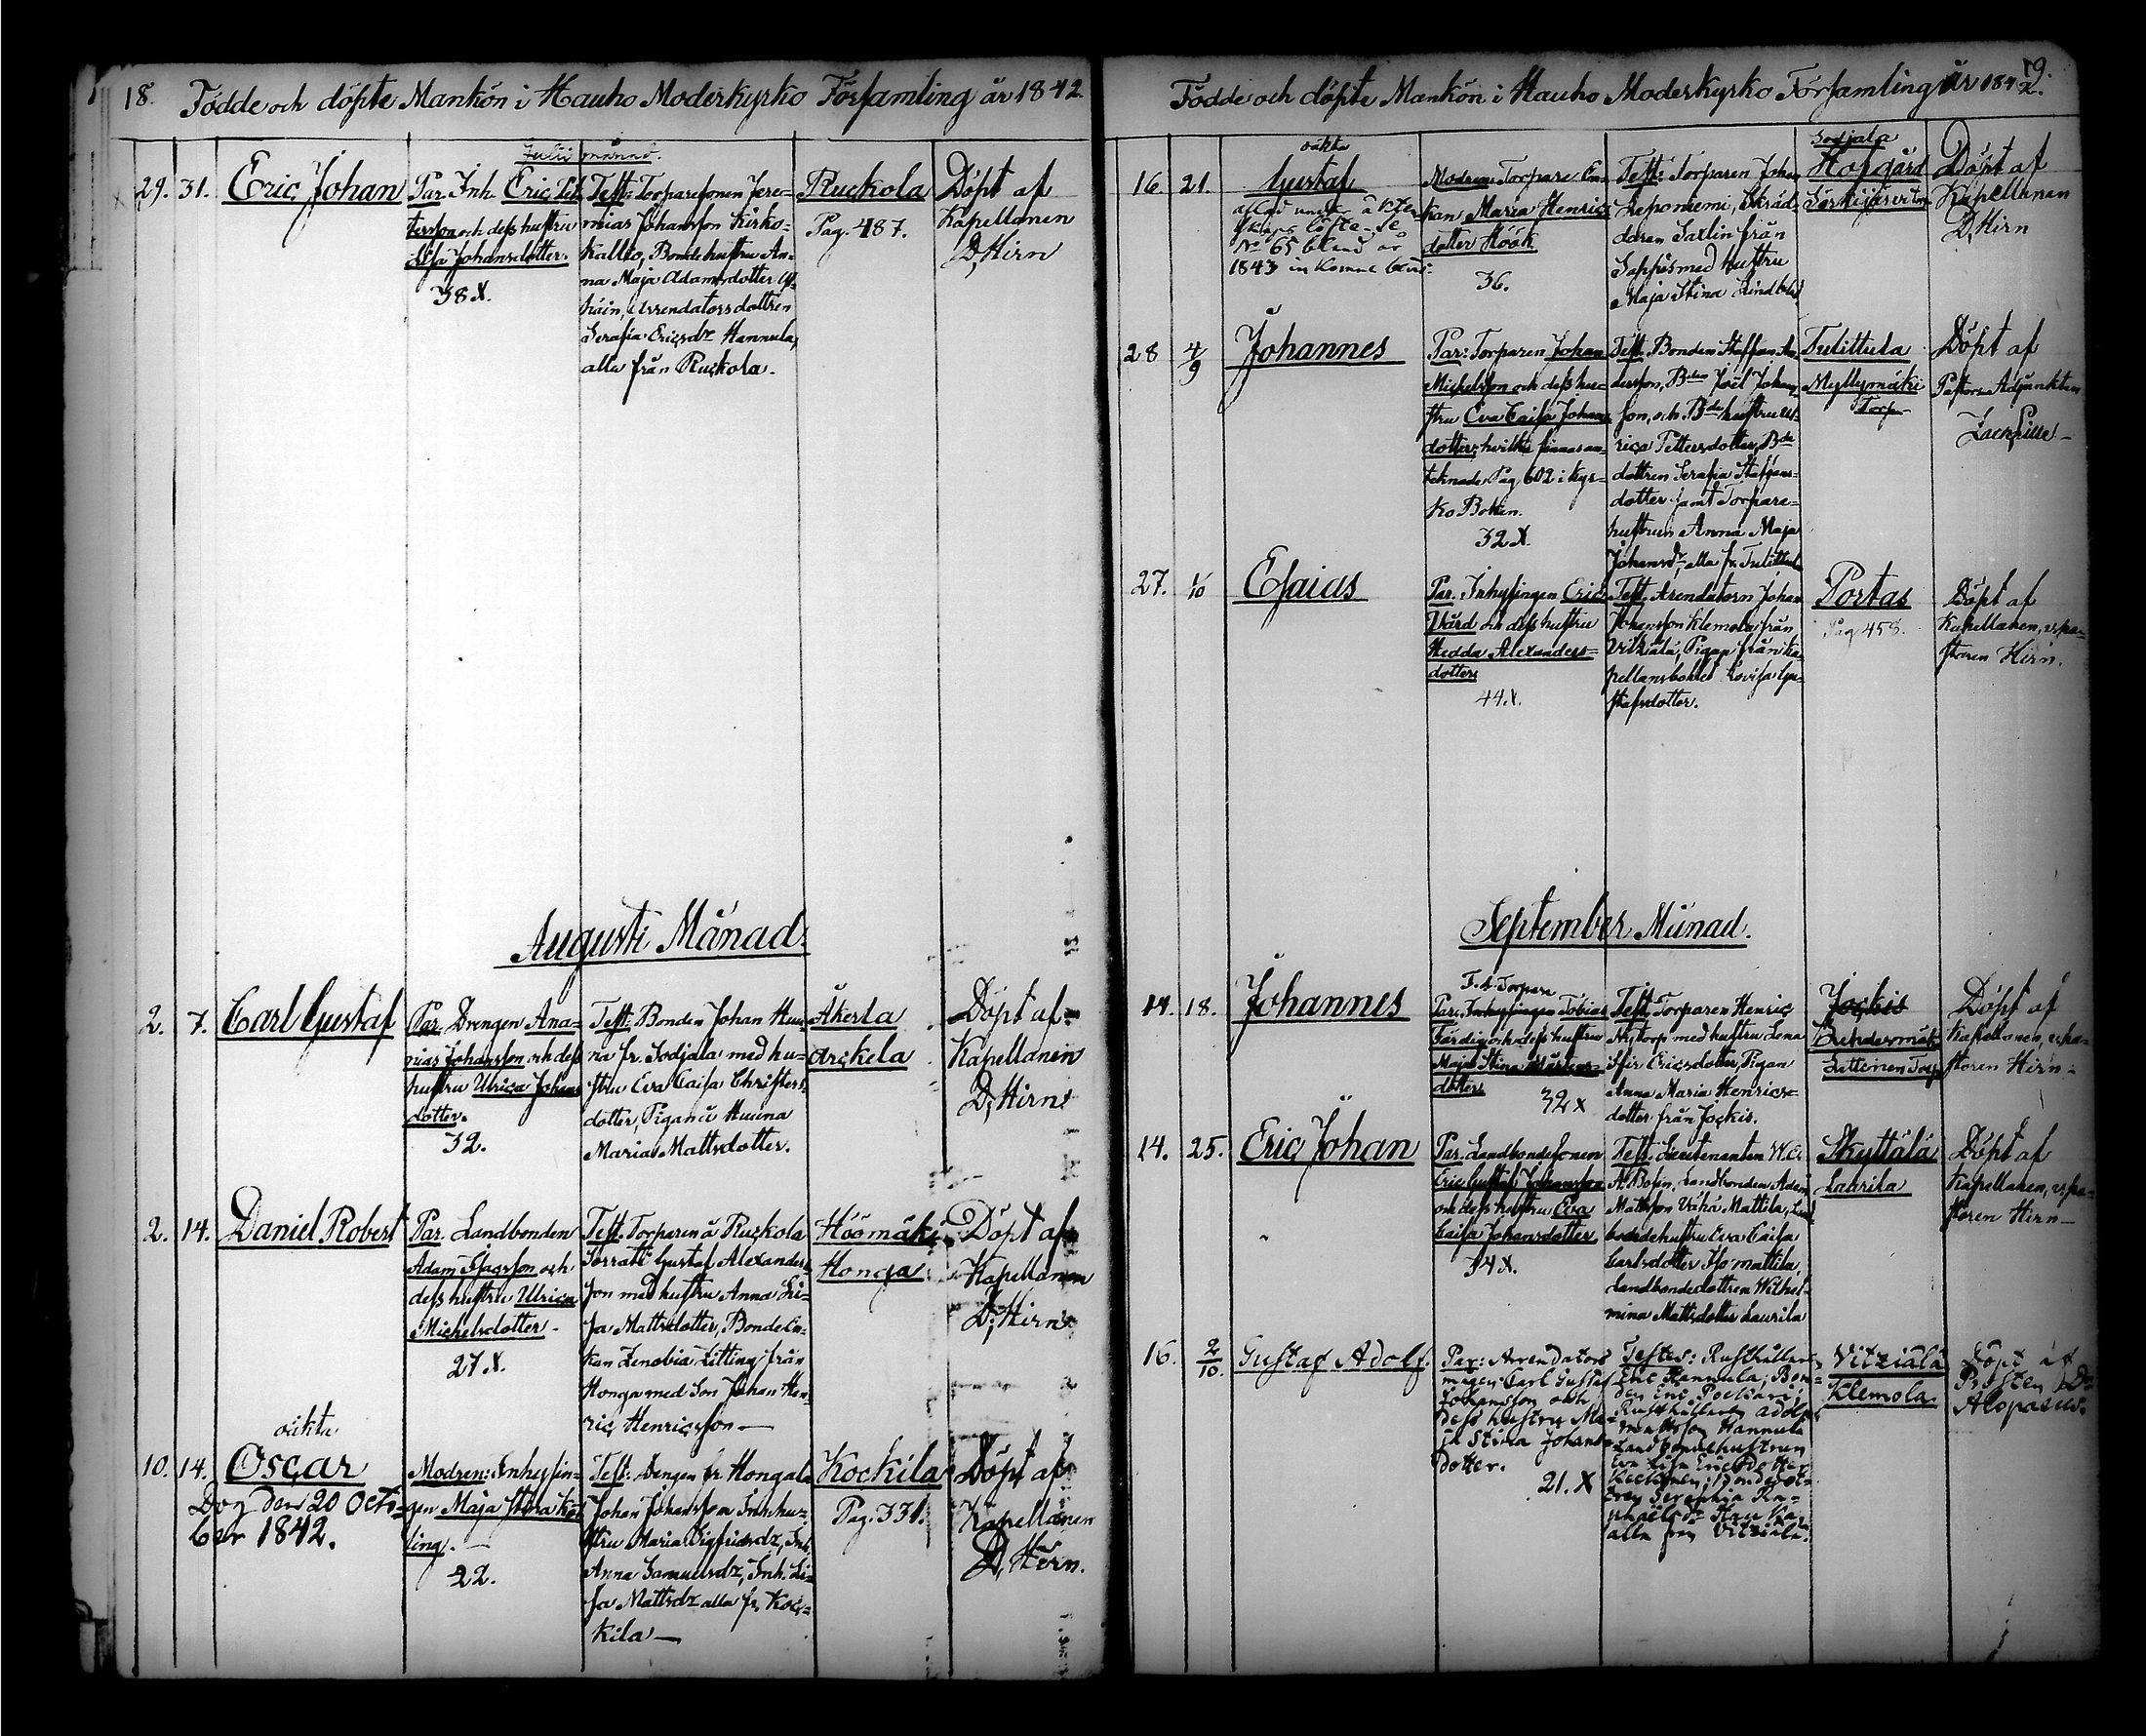 18. Födde och döpte Mankön i Hauho Moderkyrko Församling år 1842.
Julii månad.
29. 31. Eric Johan
Par. Inh. Eric Pet-
tersson och dess hustru
Lisa Johansdotter.
38 X.
Test: Torparesonen Jere-
mias Johansson Kirko-
kallio, Bondehustru An-
na Maja Adamsdotter
Arrendatorsdottren
Serafia Ericsdr Hannula,
alla från Ruckola.
Ruckola
Pag. 487.
Döpt af
Kapellanen
D, Hirn
Augusti Månad.
2. 7. Carl Gustaf
Par. Drengen Ana-
nias Johansson och dess
hustru Ulrica Johans
dotter.
32.
Test: Bonden Johan Huu-
na fr. Sodjala med hu-
stru Eva Caisa Christers
dotter, Pigan å Huuna
Maria Mattsdotter.
Åkerla
Arckela
Döpt af
Kapellanen
D, Hirn
2. 14. Daniel Robert
Par. Landbonden
Adam Isacsson och
dess hustru Ulrica
Michelsdotter.
27 X.
Test. Torparen å Ruckola
Sorratti Gustaf Alexanders-
son med hustru Anna Li-
sa Mattsdotter, Bonde En-
kan Zenobia Litting från
Honga med Son Johan Hen-
ric Henricsson —
Höömäki
Honga
Döpt af
Kapellanen
D, Hirn
oäkta
10. 14. Oscar
Dog den 20 Octo-
ber 1842.
Modren: Inhysin-
gen Maja Stina
ling. —
22.
Test: Drengen fr. Hongala
Johan Johansson Innhu-
stru Maria Sigfridsdr, Inh.
Anna Samuelsdr, Inh. Li-
sa Mattsdr alla fr. Koc-
kila —
Kockila
Pag. 331.
Döpt af
Kapellanen
D, Hirn.
19.
Födde och döpte Mankön i Hauho Moderkyrko Församling år 1842.
oäkta
16. 21. Gustaf
aflad under äkten-
skaps löfte se
No 65 bland
1843 inkomne
Modren: Torpare En-
kan Maria Henrics
dotter Höök
36.
Test: Torparen Johan
Leponiemi, Skräd-
daren Saxlin från
Sappis med hustru
Maja Stina Lindblad
Sodjala
Hofgård
Särkijärvi
Döpt af
Kapellanen
D, Hirn
28 4/9 Johannes
Par: Torparen Johan
Michelsson och dess hu-
stru Eva Caisa Johans
dotter, hvilka finnas an-
teknade Pag 602 i Kyr-
ko Boken.
32 X.
Test. Bonden Staffan An-
dersson, Bden Joël Johans-
son, och Bde hustru Ul-
rica Pettersdotter, Bde
dottren Serafia Staffans-
dotter samt Torpare-
hustrun Anna Maja
Johansdr, alla fr. Tulittula
Tulittula
Myllymäki
Torp
Döpt af
Pastors Adjunkten
27. 1/10 Esaias
Par. Inhysingen Eric
Vård och dess hustru
Hedda Alexanders-
dotter
44 X.
Test. Arendatorn Johan
Johansson Klemola från
Vitziälä, Pigan från Ka-
pellansbohle Lovisa Gu-
stafsdotter.
Portas
Pag 458.
Döpt af
Kapellanen, v. pa-
storen Hirn.
September Månad.
14. 18. Johannes
F. d. Torpare
Par. Inhysingen Tobias
Färdig och dess hustru
Maja Stina Mårtens-
dotter
32 x
Test. Torparen Henric
torp med hustru Lena
Ericsdotter, Pigan
Anna Maria Henrics-
dotter från Jockis.
Jockis
Littonen Torp
Döpt af
Kapellanen, v. pa-
storen Hirn.
14. 25. Eric Johan
Par. Landbondesonen
Eric Gustaf Johansson
och dess hustru Eva
Caisa Johansdotter
34 X.
Test. Lieutenanten
A. Bosin, Landbonden Adam
Mattsson Vähä Mattila, Land
bondehustru Eva Caisa
Carlsdotter Iso mattila
Landbondedottren Wilhel-
mina Mattsdotter Laurila
Skyttälä
Laurila
Döpt af
Kapellanen, v. pa-
storen Hirn —
16. 2/10. Gustaf Adolf.
Par: Arrendators
mågen Carl Gustaf
Johansson och
dess hustru Ma-
ja Stina Johans-
dotter.
21. X
Testes: Rusthållaren
Eric Hannula, Bon-
den Eric
Rusthållaren Adolf
Mattsson Hannula
Landbondehustrun
Eva Lisa Ericsdotter
Bondedot-
tren Seraphia Ra-
phaelsdr
alla från Vitziälä.
Vitziälä
Klemola.
Döpt af
Prosten Dr
Alopaeus.